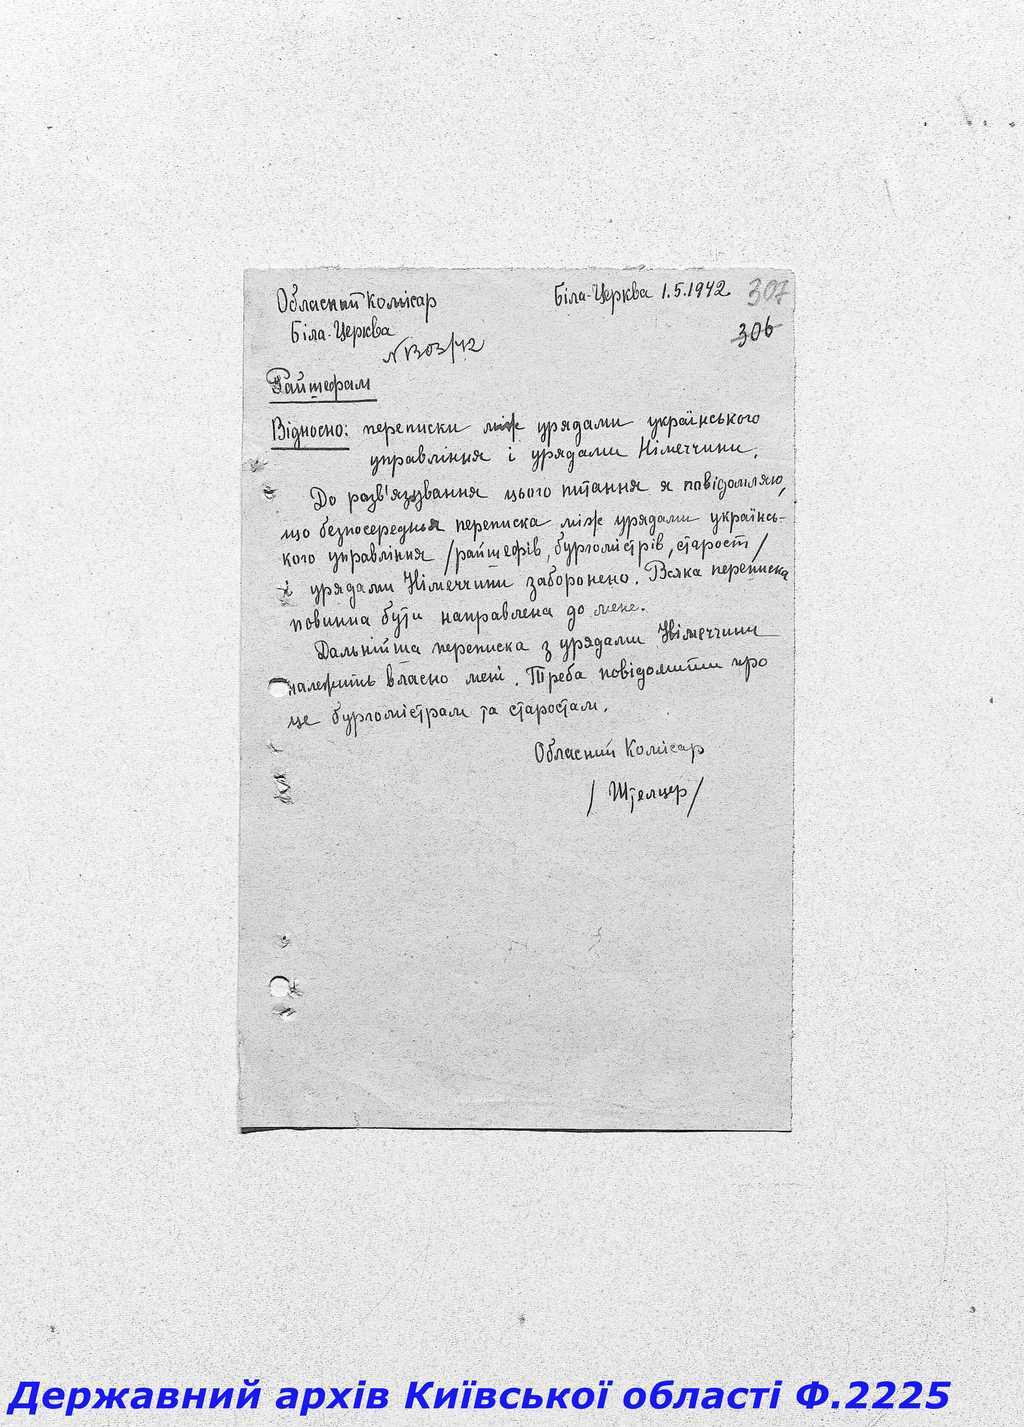 Обласний комісар
Біла-Церква 1.5.1942
307
306
Біла-Церква
N 1303/42
Райшефам
Відносно: переписки між урядами українського
управління і урядами Німеччини.
До розв'язування цього питання я повідомляю,
що безпосереднья переписка між урядами українсь-
кого управління /райшефів, бургомістрів, старост/
і урядами Німеччини заборонено. Всяка переписка
повинна бути направлена до мене.
Дальнійша переписка з урядами Німеччини
належить власно мені. Треба повідомити про
це бургомістрам та старостам.
Обласний Комісар
/ Штелцер/
Державний архів Київської області Ф.2225